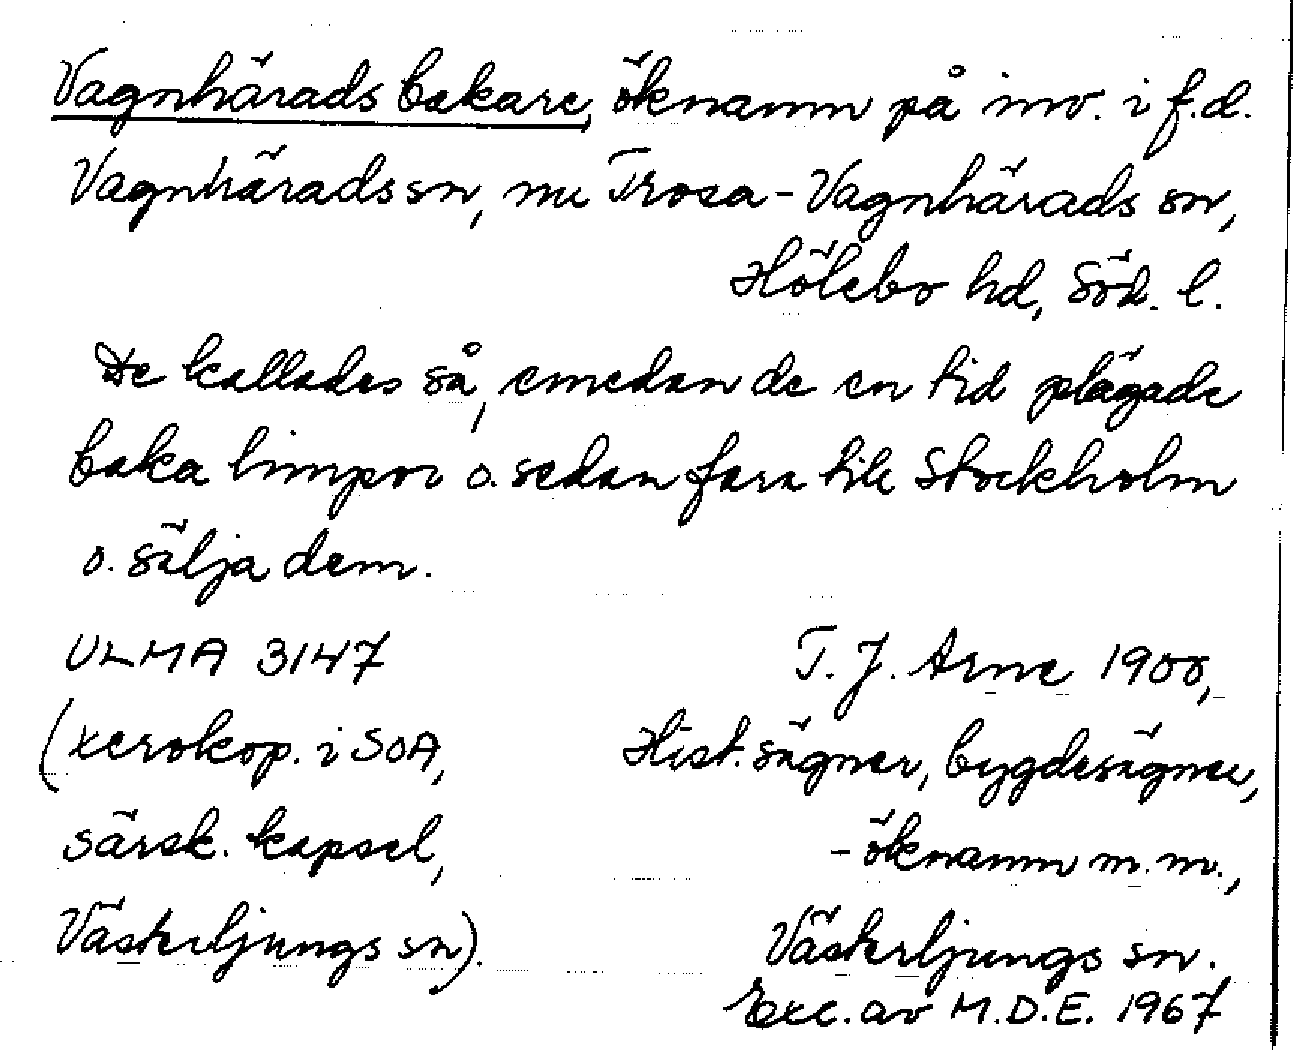 Vagnhärads bakare, öknamn på inv. i f.d.
Vagnhärads sn, nu Trosa-Vagnhärads sn,
Hölebo hd, Söd. l.
De kallades så, emedan de en tid plägade
baka limpor o. sedan fara till Stockholm
o. sälja dem.
ULMA 3147
(xerokop. i SOA,
särsk. kapsel,
Västerljungs sn).
T. J. Arne 1900,
Hist. sägner, bygdesägner,
- öknamn m. m.,
Västerljungs sn.
Exc. av M.D.E. 1967